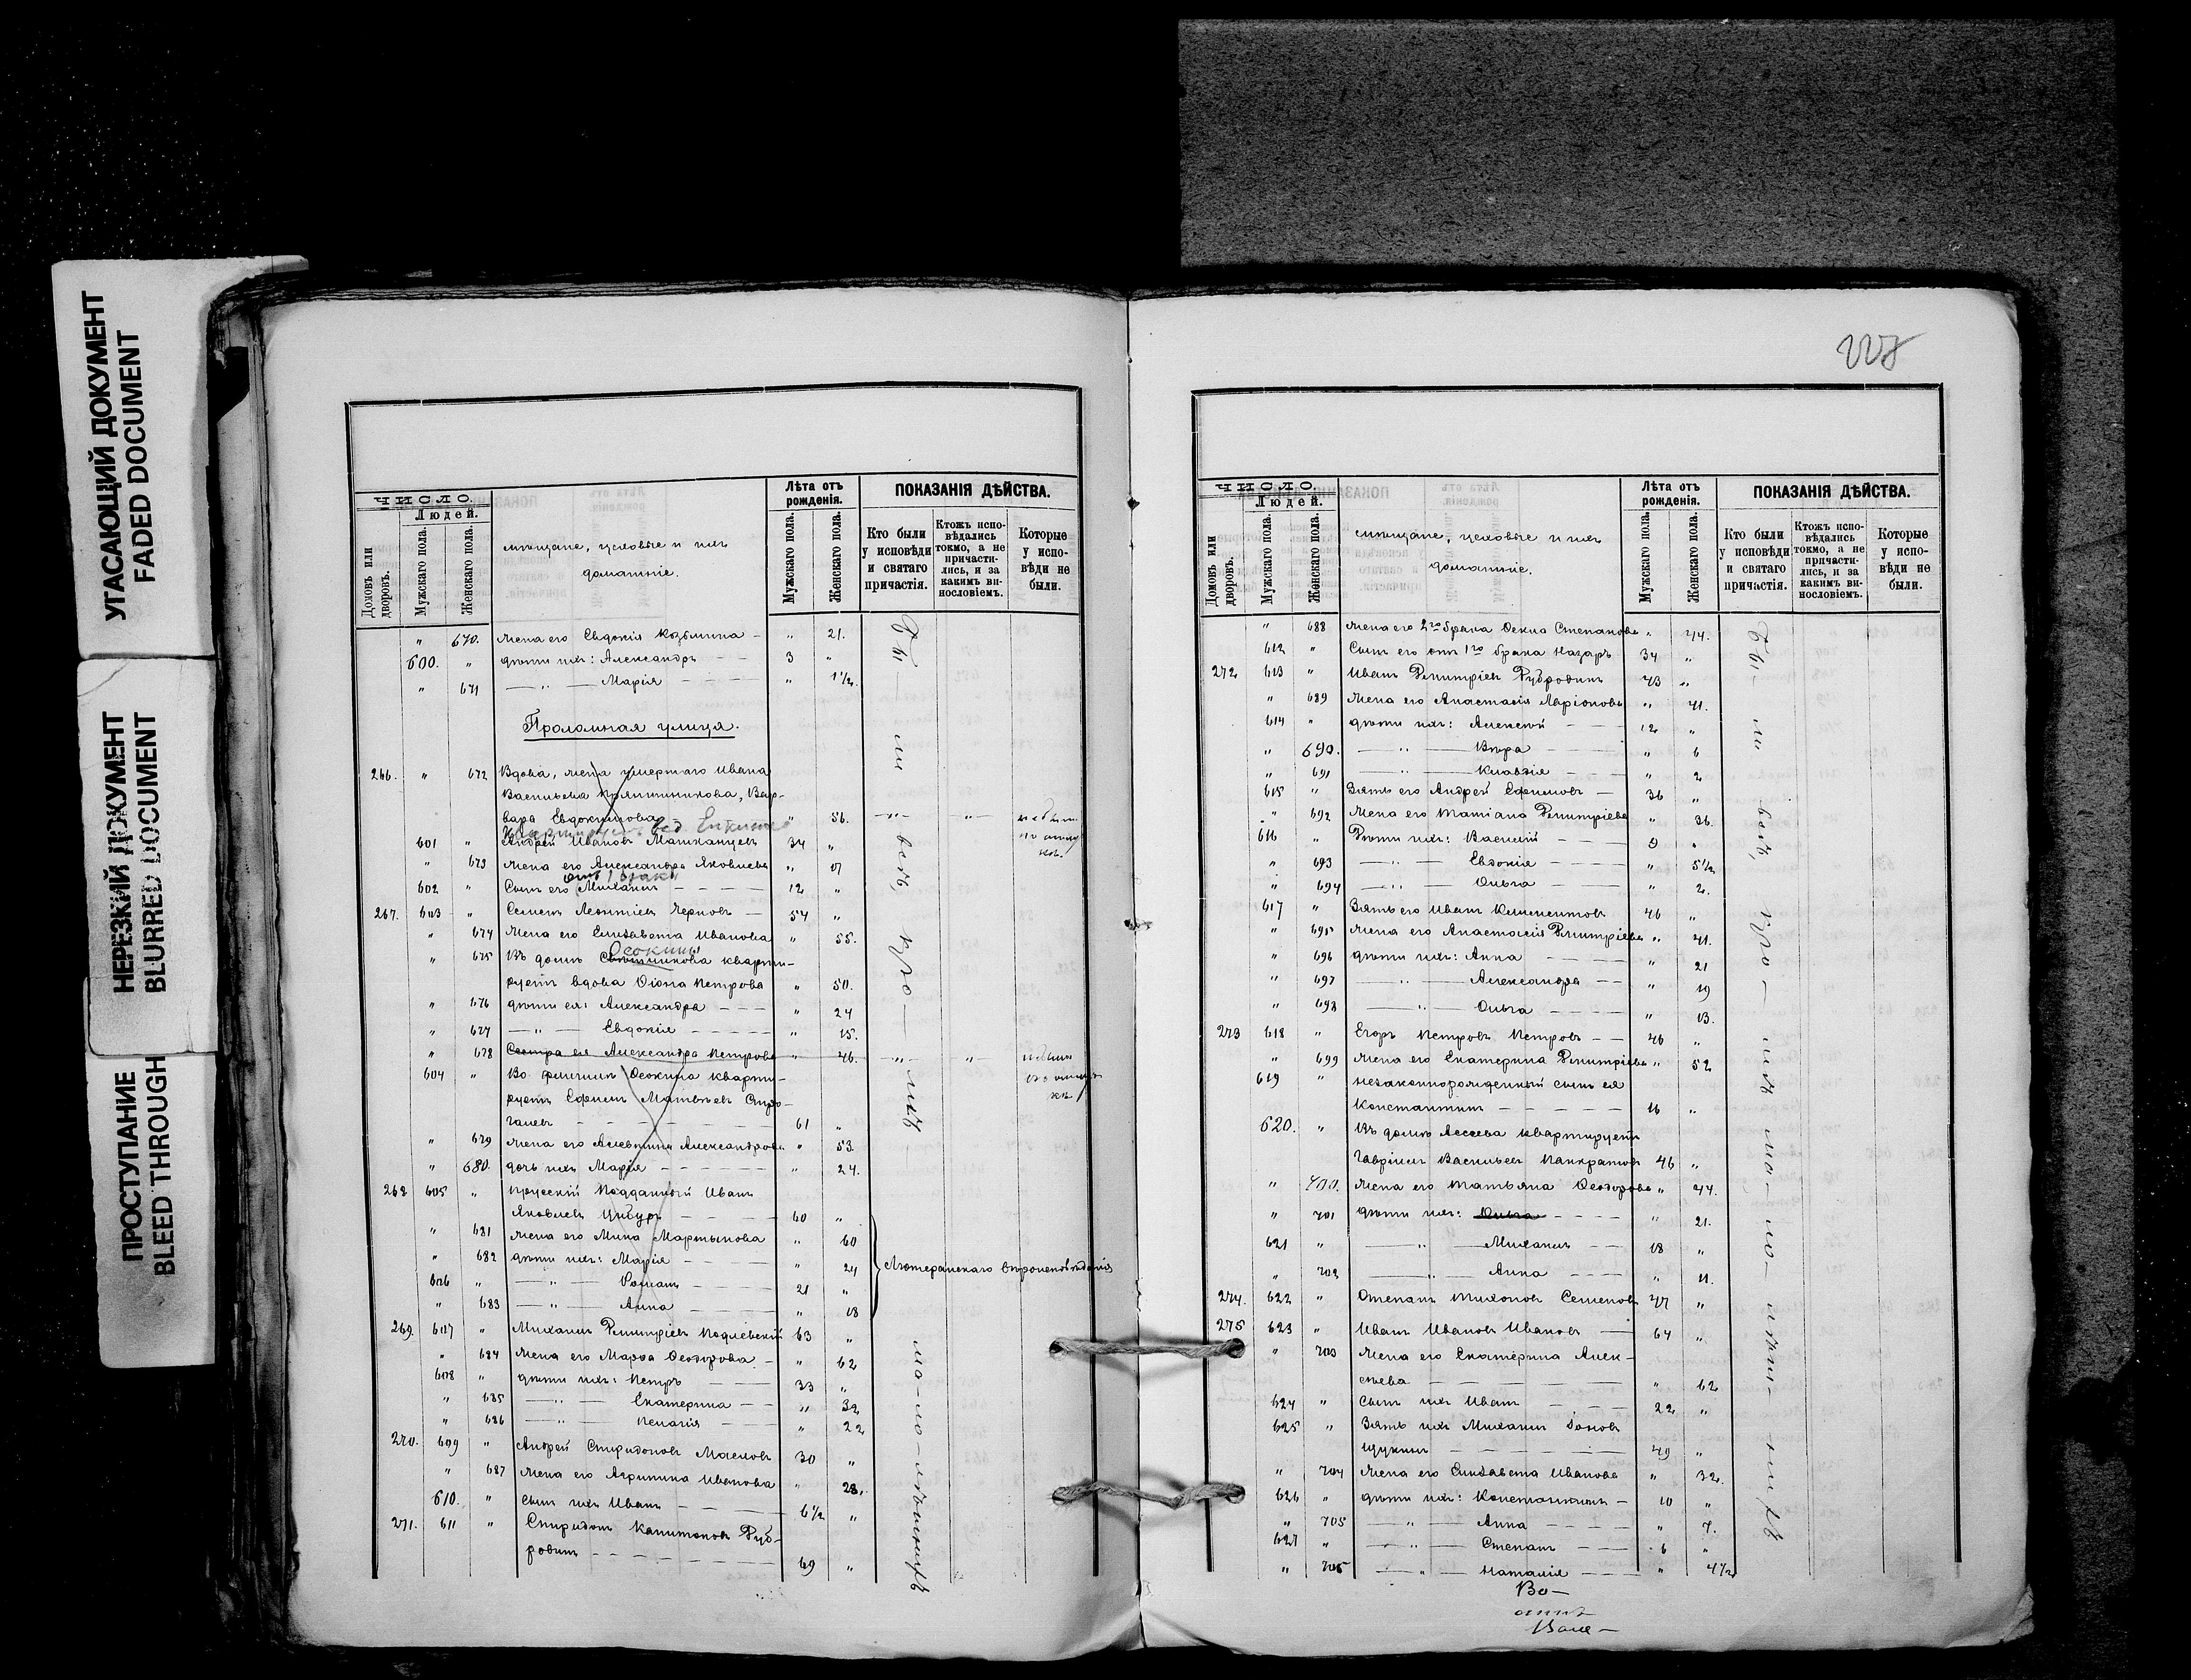 УГАСАЮЩИЙ ДОКУМЕНТ
FADED DOCUMENT
НЕРЕЗКИЙ ДОКУМЕНТ
BLURRED DOCUMENT
ПРОСТУПАНИЕ
BLEED THROUGH
ЧИСЛО.
Людей.
Домовъ или дворовъ.
Мужскаго пола.
Женскаго пола.
мѣщане, цеховые и ихъ
домашніе.
Лѣта отъ рожденія.
Мужскаго пола.
Женскаго пола.
ПОКАЗАНІЯ ДѢЙСТВА.
Кто были у исповѣди и святаго причастія.
Ктожъ исповѣдались токмо, а не причастились, и за какимъ винословіемъ.
Которые у исповѣди не были.
" 670. Жена его Евдокія Козьмина – " 21.
600. " дѣти ихъ: Александръ – – 3 "
" 671 – " – Марія – – – " 1½.
Проломная улица.
266. " 672 Вдова, жена умершаго Ивана
Васильева Пряничникова, Вар-
вара Евдокимова " 56. – " – " –
601 " Андрей Ивановъ 34 "
" 673 Жена его Александра Яковлева "
602 " Сынъ его Михаилъ – – – – 12 "
267. 603 " Семенъ Леонтіевъ Черновъ – 54 "
" 674 Жена его Елизавета Иванова " 55.
Осокина
" 675 Въ домѣ кварти-
руетъ вдова Ѳіона Петрова " 50.
" 676 дѣти ея: Александра – – – " 24
" 677 – " – Евдокія – – – – – " 15.
" 678 Сестра ея Александра Петрова " 46. – " – " –
604 " Во флигилѣ Осокина кварти-
руетъ Ефимъ Матвѣевъ
61 "
" 679 Жена его Александрова " 53.
" 680. дочь ихъ Марія – – – – – – " 24.
268 605 " Прусскій Подданный Иванъ
Яковлевъ – – – – 60 "
" 681 Жена его Мина Мартынова " 60
" 682 дѣти ихъ: Марія – – – – " 24
Лютеранскаго вѣроисповѣданія
606 " – " – Романъ – – – – 21 "
" 683 – " – Анна – – – – – " 18
269. 607 " Михаилъ Димитріевъ 63 "
" 684 Жена его Марѳа Ѳеодорова. – " 62
608 " дѣти ихъ: Петръ – – – 33 "
" 685 – " – Екатерина – – " 32
" 686 – " – Пелагія – – – " 22
270. 609 " Андрей Спиридоновъ Масловъ 30 "
" 687 Жена его Агрипина Иванова " 28.
610. " сынъ ихъ Иванъ – – – – 6½ "
271. 611 " Спиридонъ Капитоновъ Дуб-
ровинъ – – – – – – – 69 "
Бы – ли всѣ, кро – мѣ ма – ло – лѣтнихъ
228
ЧИСЛО.
Людей.
Домовъ или дворовъ.
Мужскаго пола.
Женскаго пола.
мѣщане, цеховые и ихъ
домашніе.
Лѣта отъ рожденія.
Мужскаго пола.
Женскаго пола.
ПОКАЗАНІЯ ДѢЙСТВА.
Кто были у исповѣди и святаго причастія.
Ктожъ исповѣдались токмо, а не причастились, и за какимъ винословіемъ.
Которые у исповѣди не были.
" 688 Жена его 2го брака Ѳекла Степанова " 44.
612 " Сынъ его отъ 1го брака Назаръ 34 "
272 613 " Иванъ Димитріевъ Дубровинъ 43 "
" 689 Жена его Анастасія Ларіонова " 41.
614 " дѣти ихъ: Алексѣй – – – 12 "
" 690. – " – Вѣра – – – – " 6
" 691 – " – Клавдія – – – " 2
615 " Зять его Андрей Ефимовъ – 36 "
" 692 Жена его Татіана Димитріева " 36.
616 " Дѣти ихъ: Василій – – – 9 "
" 693 – " – Евдокія – – – – " 5½
" 694 – " – Ольга – – – – " 2.
617 " Зять его Иванъ Климентовъ 46 "
" 695 Жена его Анастасія Димитріева " 41.
" 696 дѣти ихъ: Анна – – – – " 21
" 697 – " – Александра – – " 19
" 698 – " – Ольга – – – – " 13.
273 618 " Егоръ Петровъ Петровъ – – 46 "
" 699 Жена его Екатерина Димитріева " 52
619 " незаконнорожденный сынъ ея
Константинъ – – – – – 16 "
620. " Въ домѣ квартируетъ
Гавріилъ Васильевъ Панкратовъ 46 "
" 700. Жена его Татьяна Ѳеодорова " 44.
" 701 дѣти ихъ: Ольга – – – – " 21.
621 " – " – Михаилъ – – 18 "
" 702 – " – Анна – – – " 11.
274. 622 " Степанъ Тихоновъ Семеновъ 47 "
275 623 " Иванъ Ивановъ Ивановъ – 64 "
" 703 Жена его Екатерина Алек-
сѣева – – – – – – – " 62
624 " Сынъ ихъ Иванъ – – – 22 "
625 " Зять ихъ Михаилъ
Щукинъ – – – – – – 49 "
" 704 Жена его Елизавета Иванова " 32.
626 " дѣти ихъ: Константинъ – 10 "
" 705 – " – Анна – – – – " 7.
627 " – " – Степанъ – – – 6 "
" 706 – " – Наталія – – – " 4½
Бы – ли всѣ, кро – мѣ ма – ло – лѣт – нихъ
Во –